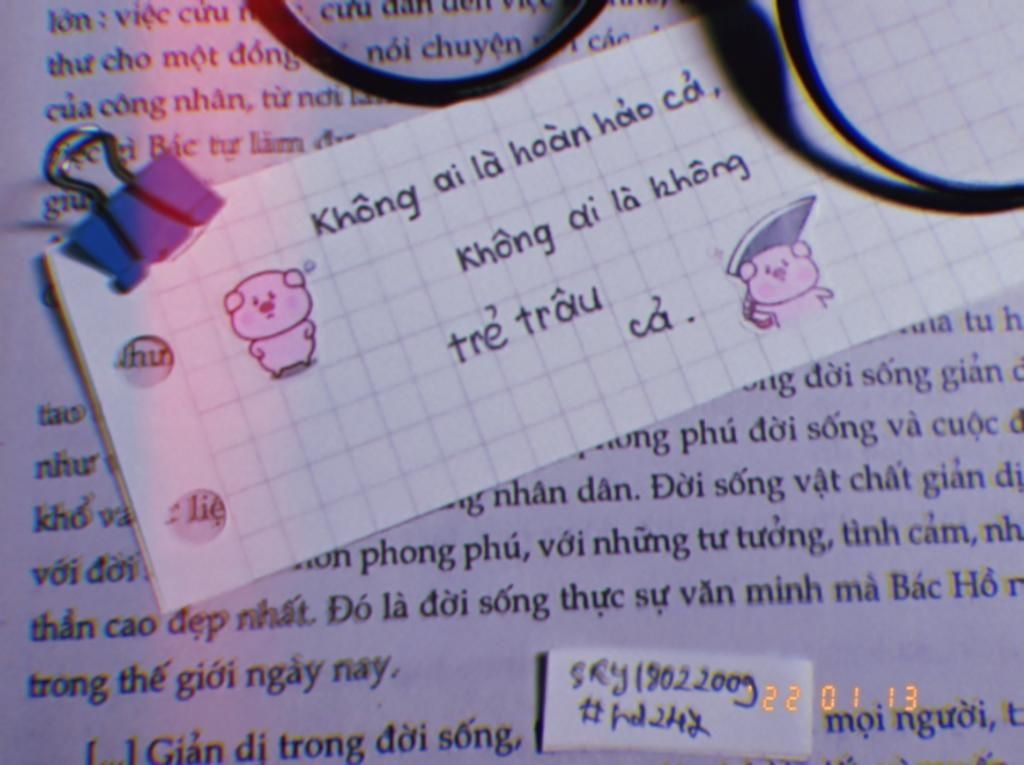 lớn : việc cứu cứu dân đến
thư cho một đồng nói chuyện
của công nhân, từ nơi
Bác tự làm
Không ai là hoàn hảo cả,
Không ai là không
trẻ trâu
cả.
như
liệ
tu h
đời sống giản
tao
như phú đời sống và cuộc
khổ nhân dân. Đời sống vật chất giản dị
với đời phong phú, với những tư tưởng, tình cảm,
thần cao đẹp nhất. Đó là đời sống thực sự văn minh mà Bác Hồ
trong thế giới ngày nay.
[...] Giản dị trong đời sống, mọi người,
22 01 13